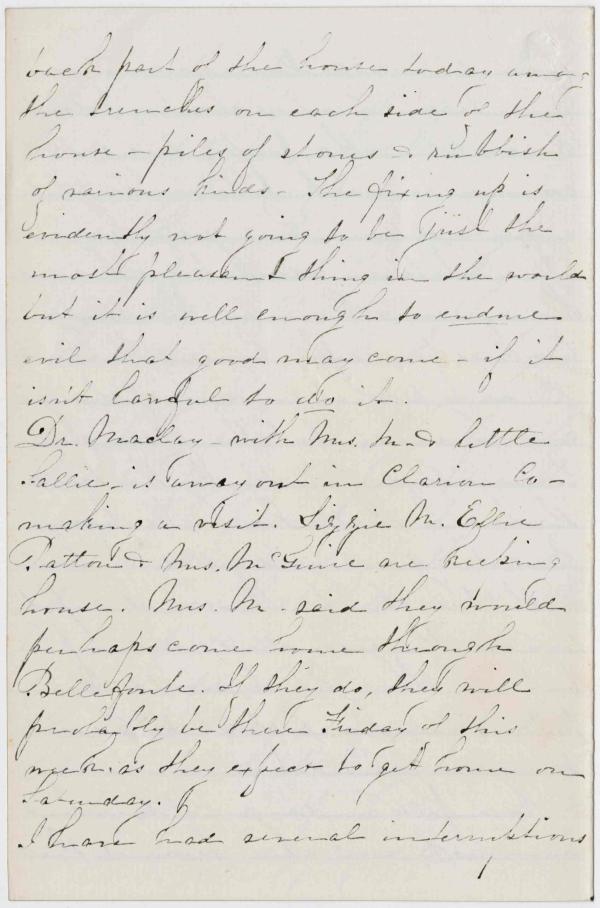 back part of the house today among
the trenches on each side of the
house - piles of stones & rubbish
of various kinds - The fixing up is
evidently not going to be just the
most pleasant thing in the world
but it is well enough to endure
evil that good may come - if it
isn't lawful to do it.
Dr. Maclay - with Mrs. M - & little
Sallie - is away out in Clarion Co -
making a visit. Lizzie M. Effie
Patton & Mrs. McGuire are keeping
house. Mrs. M. said they would
perhaps come home through
Bellefonte. If they do, they will
probably be there Friday of this
week as they expect to get home on
Saturday.
I have had several interruptions